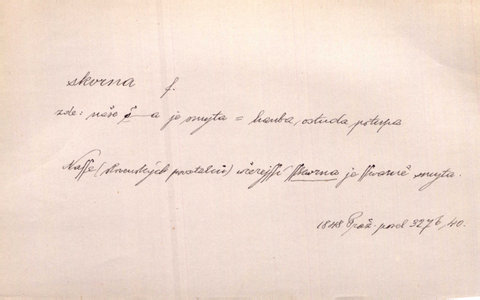 skvrna f.
zde: naše š–a je smyta = hanba, ostuda potupa
Nasse (Slovenských povstalců) včerejssí sskvrna je sskvarně smyta.
1848 Praž. posel 3276, 40.